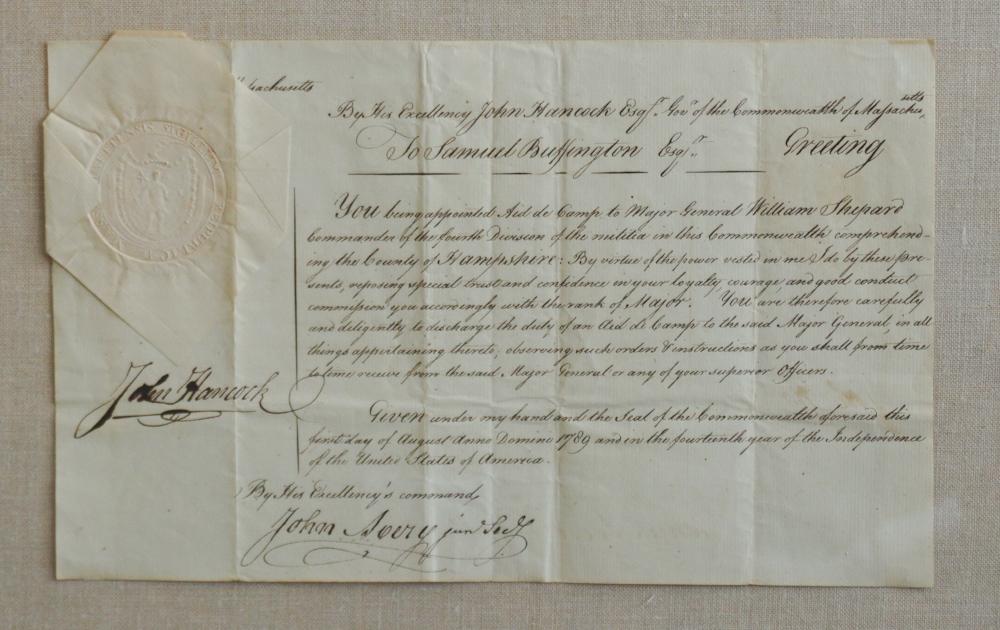 By His Excellency John Hancock Esqr. Govr of the Commonwealth of Massachusetts
To Samuel Buffington Esqr. Greeting
You being appointed Aid de Camp to Major General William Shepard
Commander of the fourth Division of the militia in this Commonwealth comprehend-
ing the County of Hampshire: By virtue of the power vested in me I do by these Pre-
sents, reposing special trust and confidence in your loyalty, courage, and good conduct
commission you accordingly with the rank of Major. You are therefore carefully
and deligently to discharge the duty of an Aid de Camp to the said Major General, in all
things appertaining thereto, observing such orders & instructions as you shall from time
to time receive from the said Major General or any of your superior Officers.
Given under my hand and the Seal of the Commonwealth aforesaid this
first day of August Anno Domini 1789 and in the fourteenth year of the Independence
of the United States of America.
John Hancock
By His Excellency's command,
John Avery junr Secy